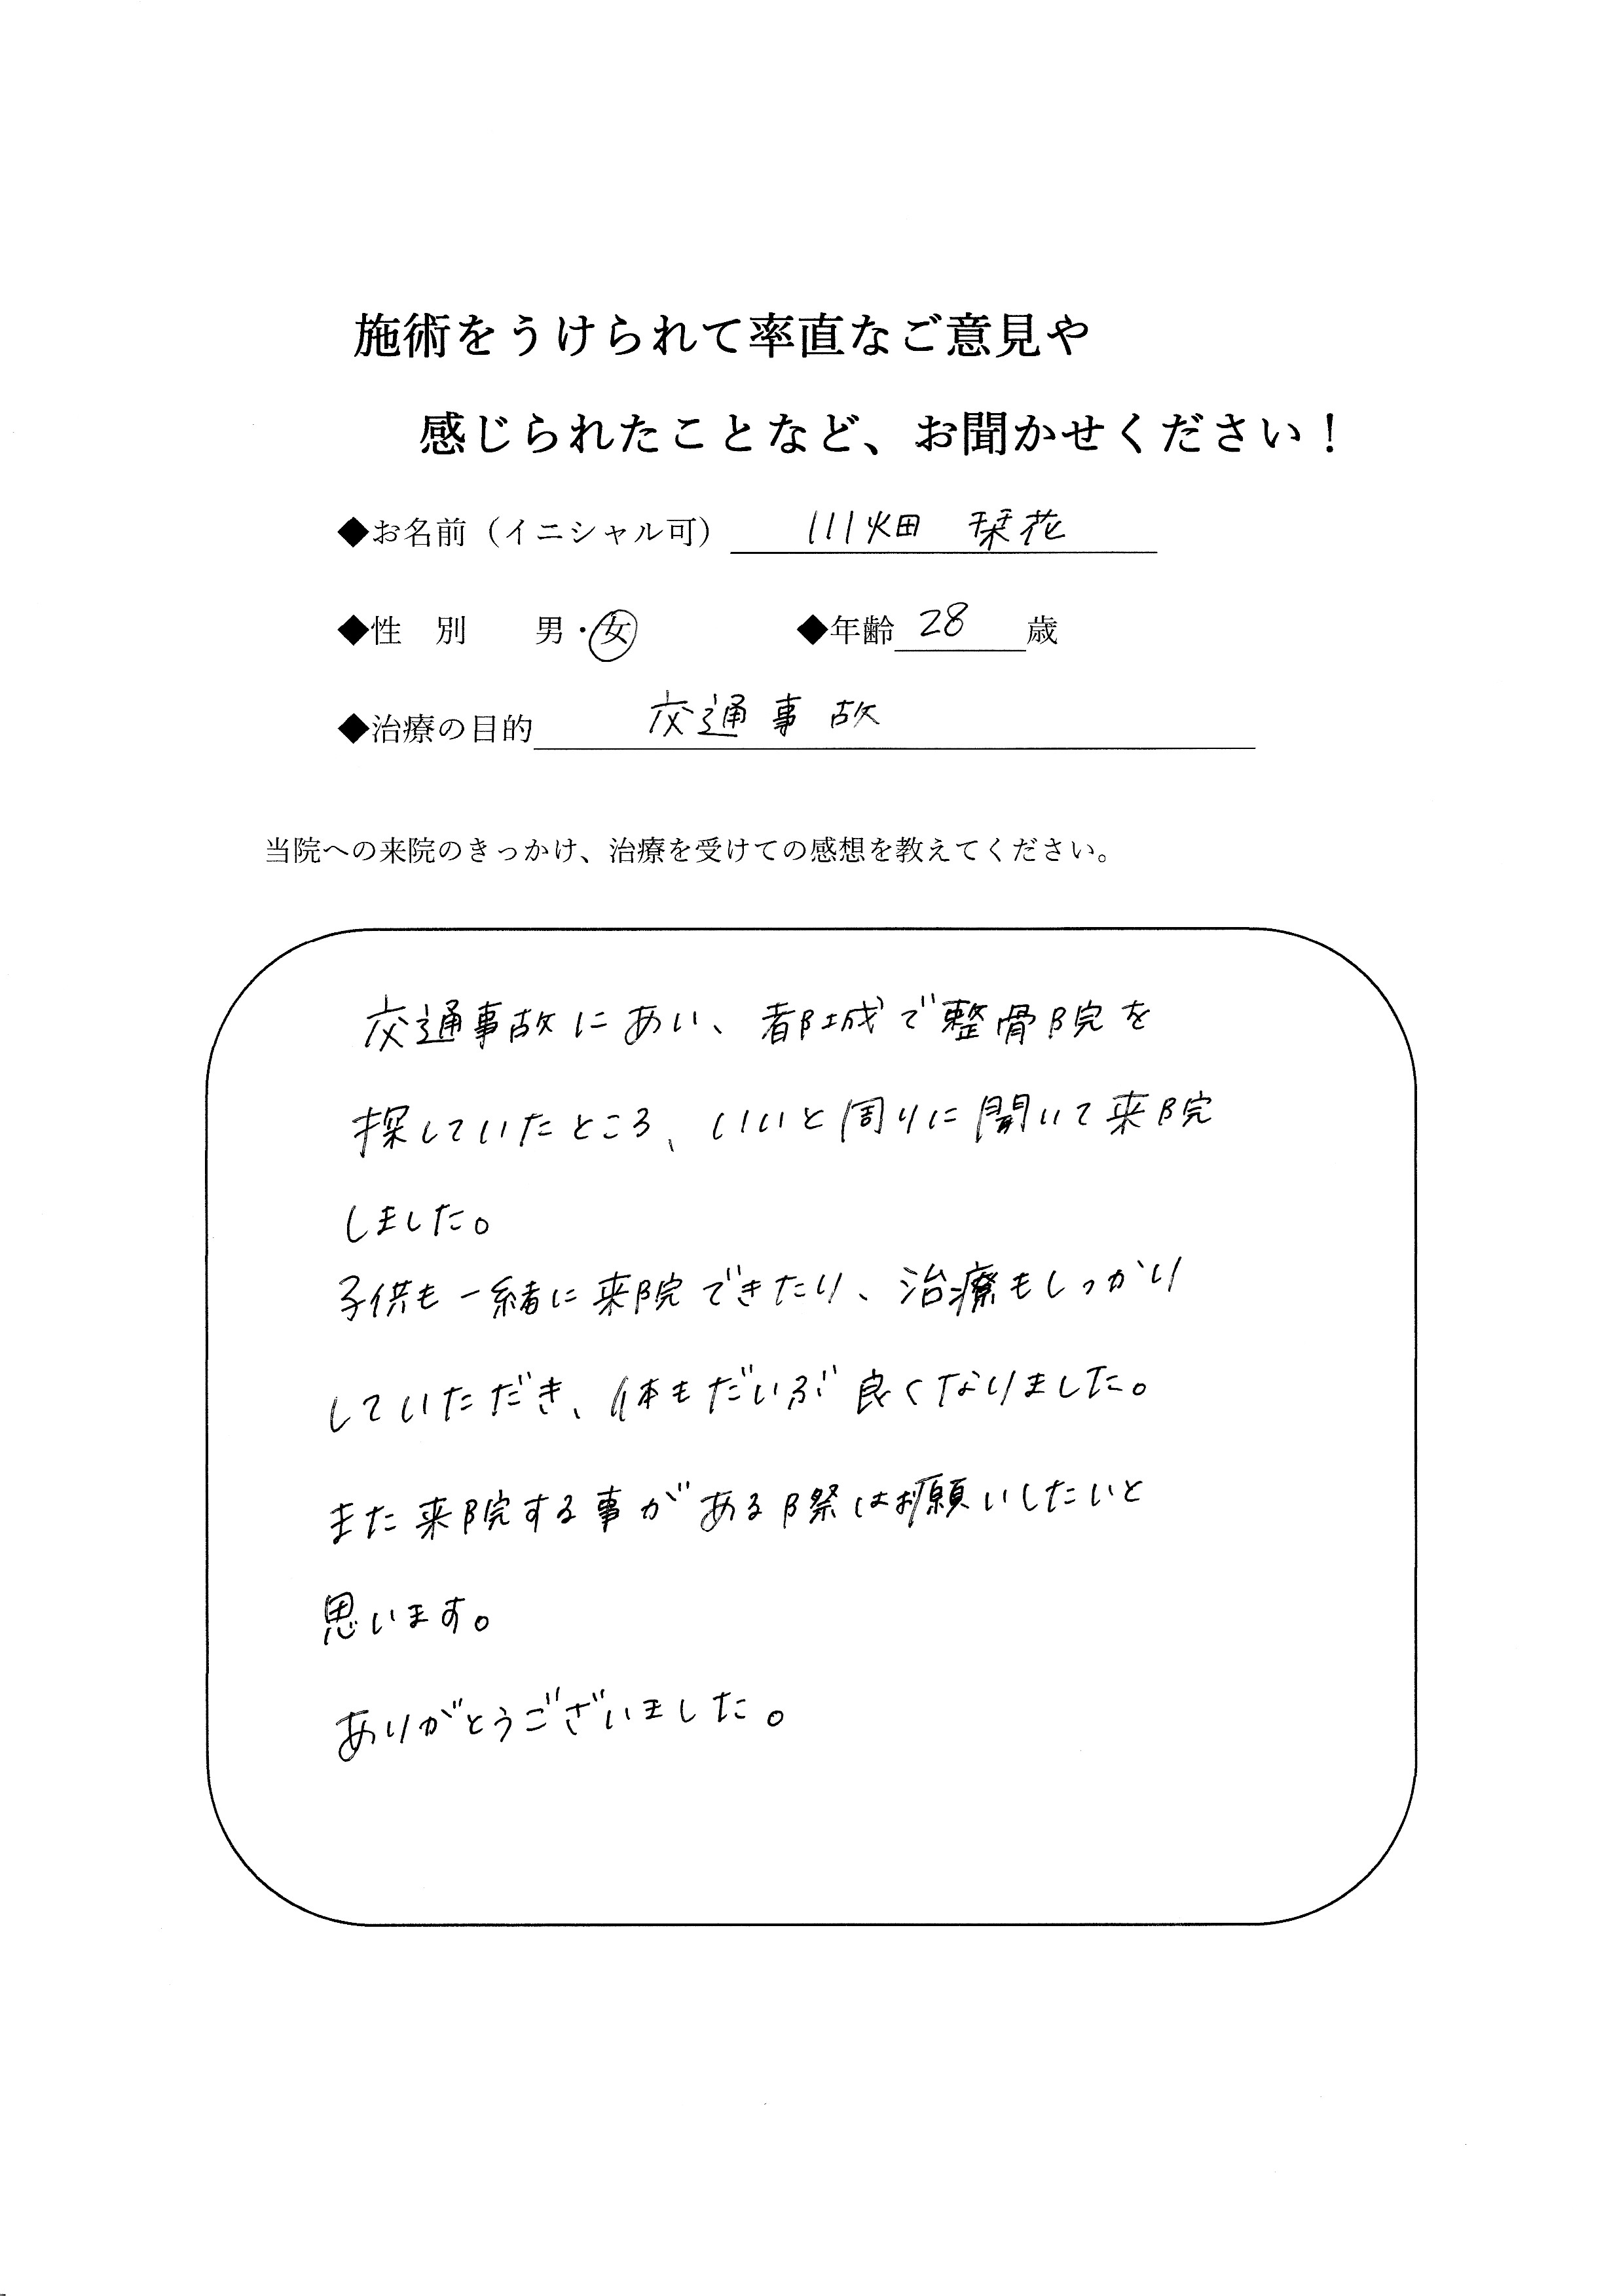 施術をうけられて率直なご意見や
感じられたことなど、お聞かせください！
◆お名前（イニシャル可） 川畑 栞花
◆性 別 男・女 ◆年齢 28 歳
◆治療の目的 交通事故
当院への来院のきっかけ、治療を受けての感想を教えてください。
交通事故にあい、都城で整骨院を
探していたところ、いいと周りに聞いて来院
しました。
子供も一緒に来院できたり、治療もしっかり
していただき、体もだいぶ良くなりました。
また来院する事がある際はお願いしたいと
思います。
ありがとうございました。